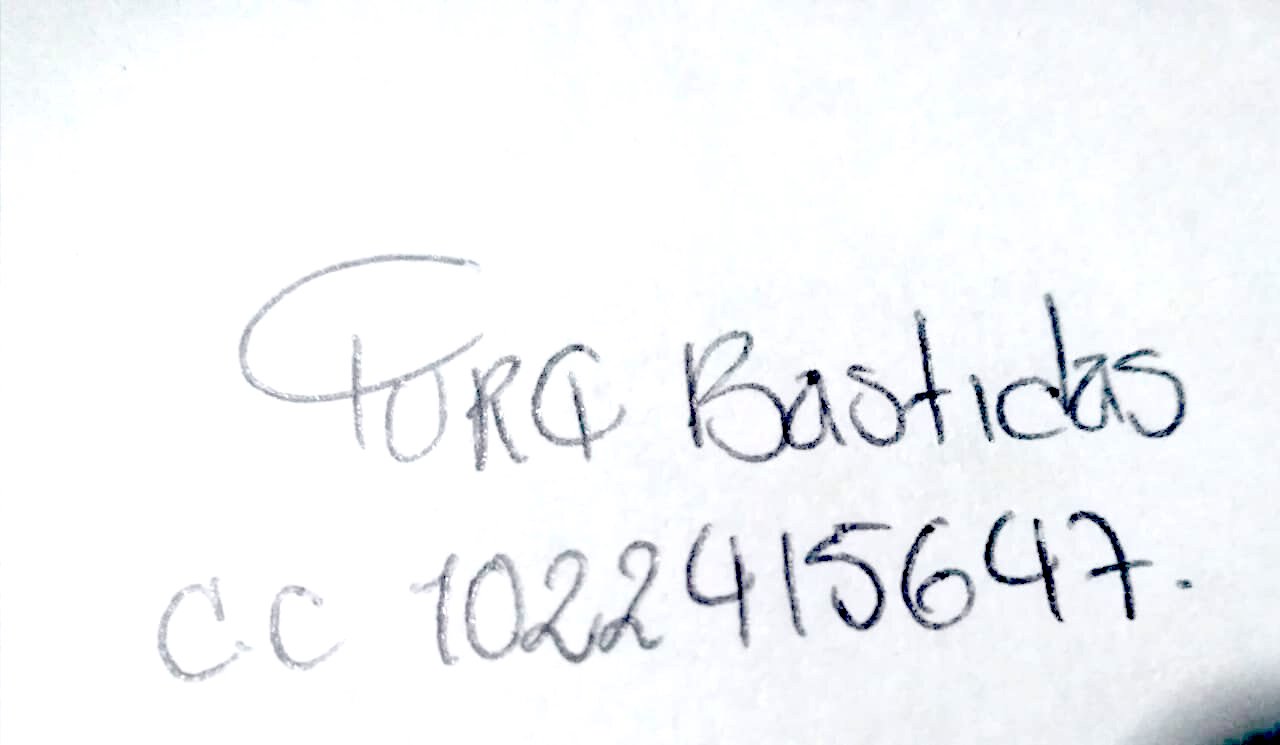 Yura Bastidas
CC 1022415647.